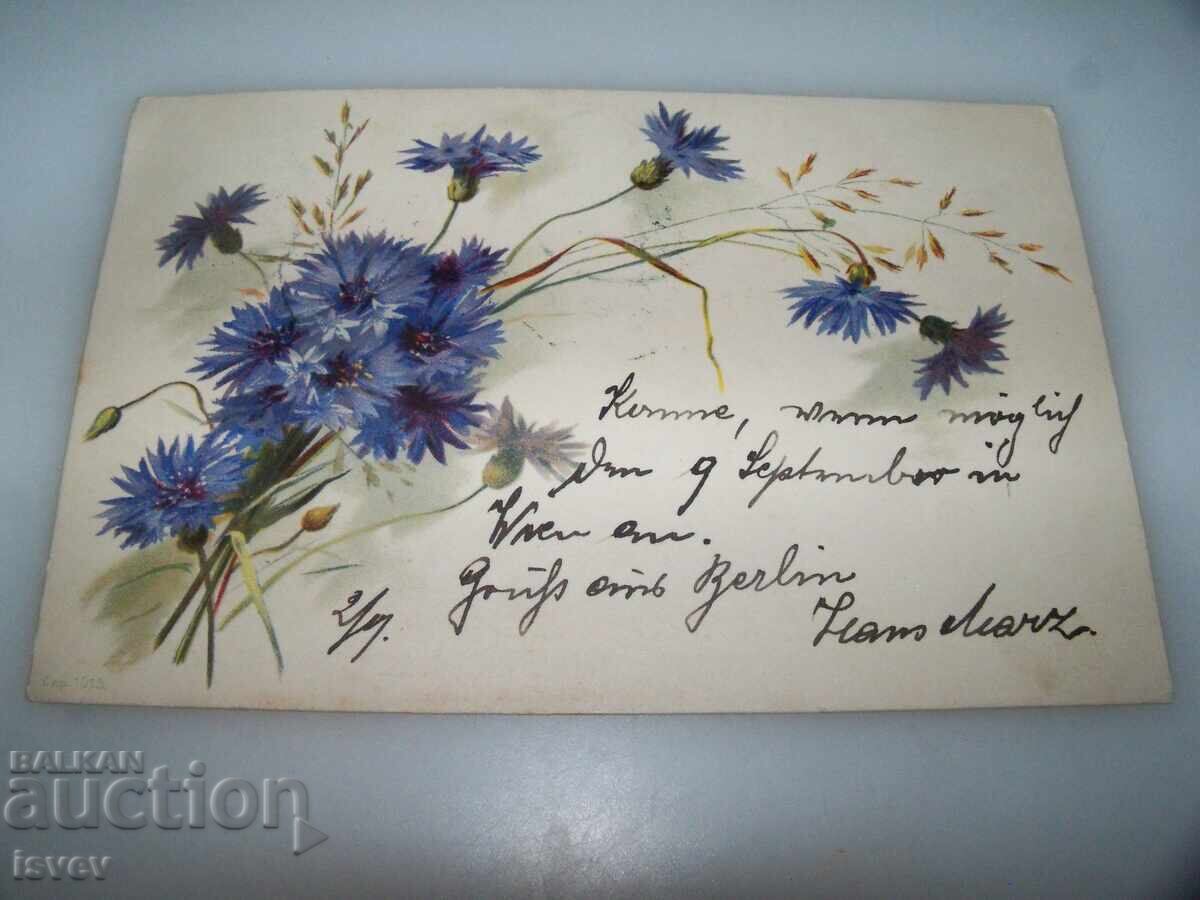 Komme, wenn möglich
den 9 September in
Wien an.
Gruß aus Berlin
2/9.
Hans Marz.
BALKAN
auction
isvev